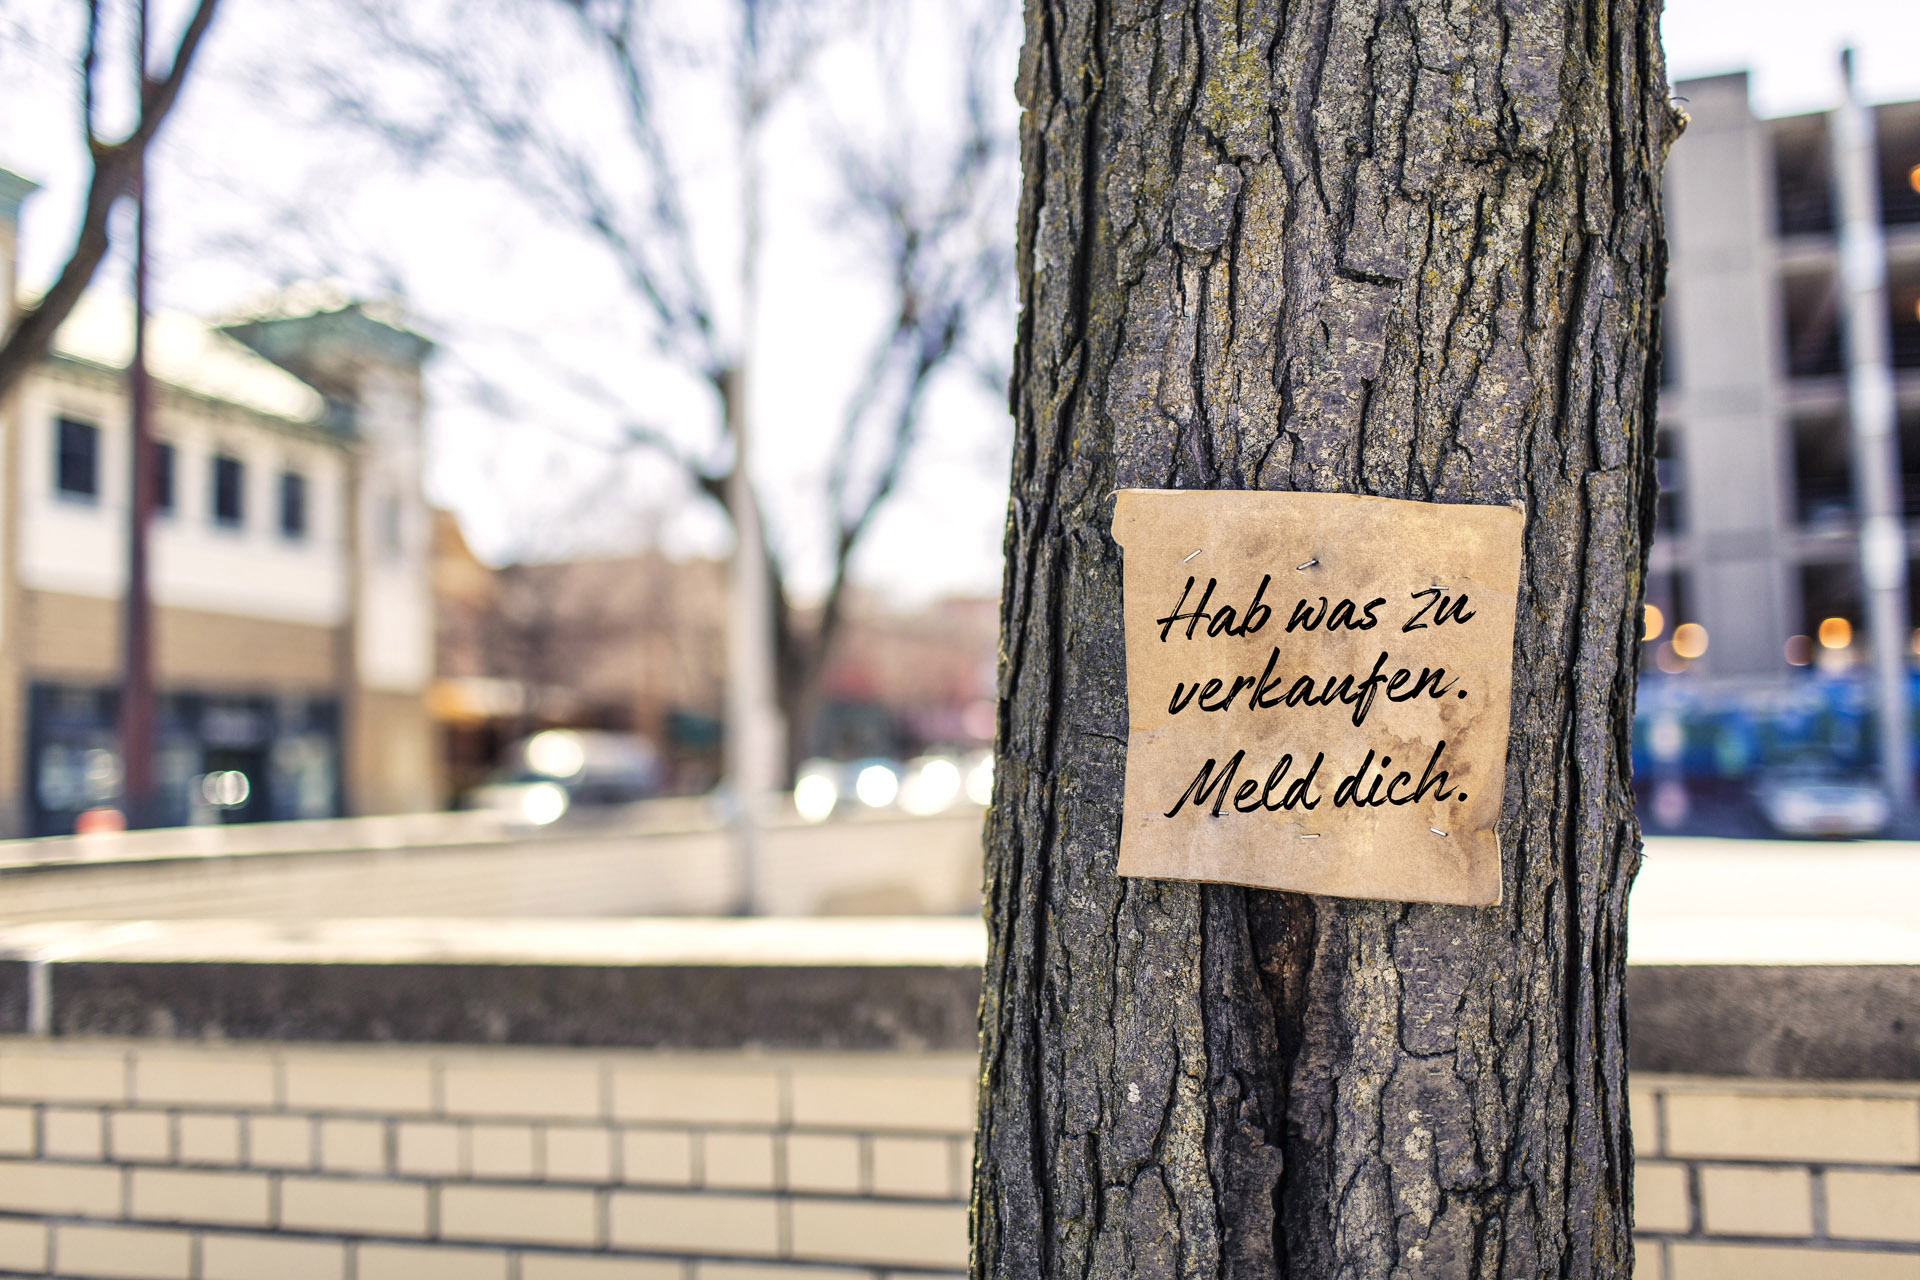 Hab was zu
verkaufen.
Meld dich.